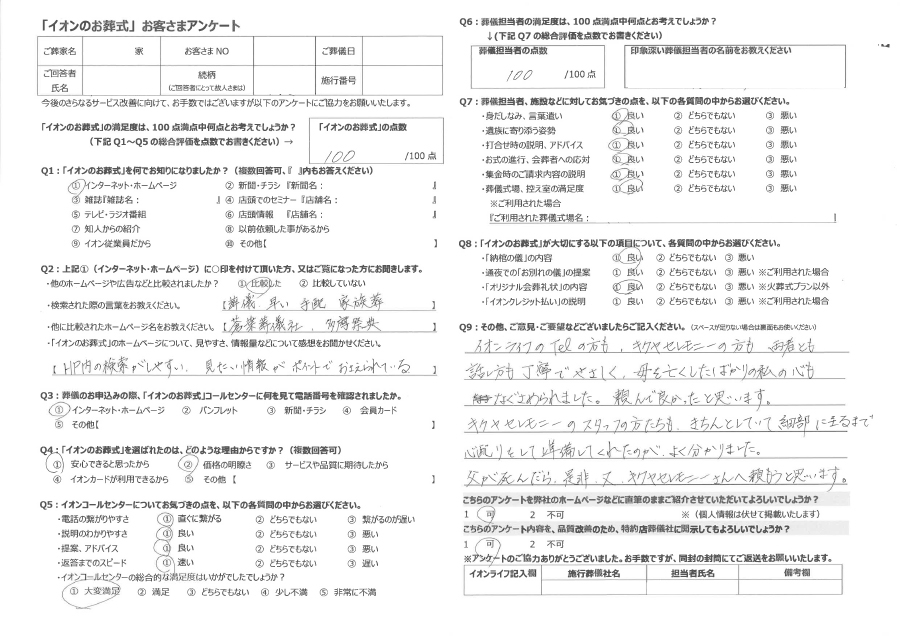 「イオンのお葬式」お客さまアンケート
ご葬家名 家 お客さまNO ご葬儀日
ご回答者氏名 続柄(ご回答者にとって故人さまは) 施行番号
今後のさらなるサービス改善に向けて、お手数ではございますが以下のアンケートにご協力をお願いいたします。
「イオンのお葬式」の満足度は、100点満点中何点とお考えでしょうか?
(下記Q1～Q5の総合評価を点数でお書きください) →
「イオンのお葬式」の点数
100 /100点
Q1:「イオンのお葬式」を何でお知りになりましたか?(複数回答可、『 』内もお答えください)
① インターネット・ホームページ ② 新聞・チラシ『新聞名: 』
③ 雑誌『雑誌名: 』 ④ 店頭でのセミナー『店舗名: 』
⑤ テレビ・ラジオ番組 ⑥ 店頭情報 『店舗名: 』
⑦ 知人からの紹介 ⑧ 以前依頼した事があるから
⑨ イオン従業員だから ⑩ その他【 】
Q2:上記①(インターネット・ホームページ)に○印を付けて頂いた方、又はご覧になった方にお聞きします。
・他のホームページや広告などと比較されましたか? ① 比較した ② 比較していない
・検索された際の言葉をお教えください。 【 葬儀 早い 手配 家族葬
・他に比較されたホームページ名をお教えください。【 葬儀社、 祭典
・「イオンのお葬式」のホームページについて、見やすさ、情報量などについて感想をお聞かせください。
【 HP内の検索がしやすい、見たい情報がポイントでおさえられている 】
Q3:葬儀のお申込みの際、「イオンのお葬式」コールセンターに何を見て電話番号を確認されましたか。
① インターネット・ホームページ ② パンフレット ③ 新聞・チラシ ④ 会員カード
⑤ その他【 】
Q4:「イオンのお葬式」を選ばれたのは、どのような理由からですか?(複数回答可)
① 安心できると思ったから ② 価格の明瞭さ ③ サービスや品質に期待したから
④ イオンカードが利用できるから ⑤ その他【 】
Q5:イオンコールセンターについてお気づきの点を、以下の各質問の中からお選びください。
・電話の繋がりやすさ ① 直ぐに繋がる ② どちらでもない ③ 繋がるのが遅い
・説明のわかりやすさ ① 良い ② どちらでもない ③ 悪い
・提案、アドバイス ① 良い ② どちらでもない ③ 悪い
・返答までのスピード ① 速い ② どちらでもない ③ 遅い
・イオンコールセンターの総合的な満足度はいかがでしたでしょうか?
① 大変満足 ② 満足 ③ どちらでもない ④ 少し不満 ⑤ 非常に不満
Q6:葬儀担当者の満足度は、100点満点中何点とお考えでしょうか?
↓(下記Q7の総合評価を点数でお書きください)
葬儀担当者の点数 印象深い葬儀担当者の名前をお教えください
100 /100点
Q7:葬儀担当者、施設などに対してお気づきの点を、以下の各質問の中からお選びください。
・身だしなみ、言葉遣い ① 良い ② どちらでもない ③ 悪い
・遺族に寄り添う姿勢 ① 良い ② どちらでもない ③ 悪い
・打合せ時の説明、アドバイス ① 良い ② どちらでもない ③ 悪い
・お式の進行、会葬者への応対 ① 良い ② どちらでもない ③ 悪い
・集金時のご請求内容の説明 ① 良い ② どちらでもない ③ 悪い
・葬儀式場、控え室の満足度 ① 良い ② どちらでもない ③ 悪い
※ご利用された場合
『ご利用された葬儀式場名: 』
Q8:「イオンのお葬式」が大切にする以下の項目について、各質問の中からお選びください。
・「納棺の儀」の内容 ① 良い ② どちらでもない ③ 悪い
・通夜での「お別れの儀」の提案 ① 良い ② どちらでもない ③ 悪い ※ご利用された場合
・「オリジナル会葬礼状」の内容 ① 良い ② どちらでもない ③ 悪い ※火葬式プラン以外
・「イオンクレジット払い」の説明 ① 良い ② どちらでもない ③ 悪い ※ご利用された場合
Q9:その他、ご意見・ご要望などございましたらご記入ください。(スペースが足りない場合は裏面もお使いください)
イオンライフのTelの方も、キクヤセレモニーの方も 両者とも
話し方も丁寧でやさしく、母を亡くしたばかりの私の心も
なぐさめられました。頼んで良かったと思います。
キクヤセレモニーのスタッフの方たちも、きちんとしていて細部に至るまで
心配りをして準備してくれたのが、よく分かりました。
父が死んだら、是非、又、キクヤセレモニーさんへ頼もうと思います。
こちらのアンケートを弊社のホームページなどに直筆のままご紹介させていただいてよろしいでしょうか?
1 可 2 不可 ※(個人情報は伏せて掲載いたします)
こちらのアンケート内容を、品質改善のため、特約店葬儀社に開示してもよろしいでしょうか?
1 可 2 不可
※アンケートのご協力ありがとうございました。お手数ですが、同封の封筒にてご返送をお願いいたします。
イオンライフ記入欄 施行葬儀社名 担当者氏名 備考欄